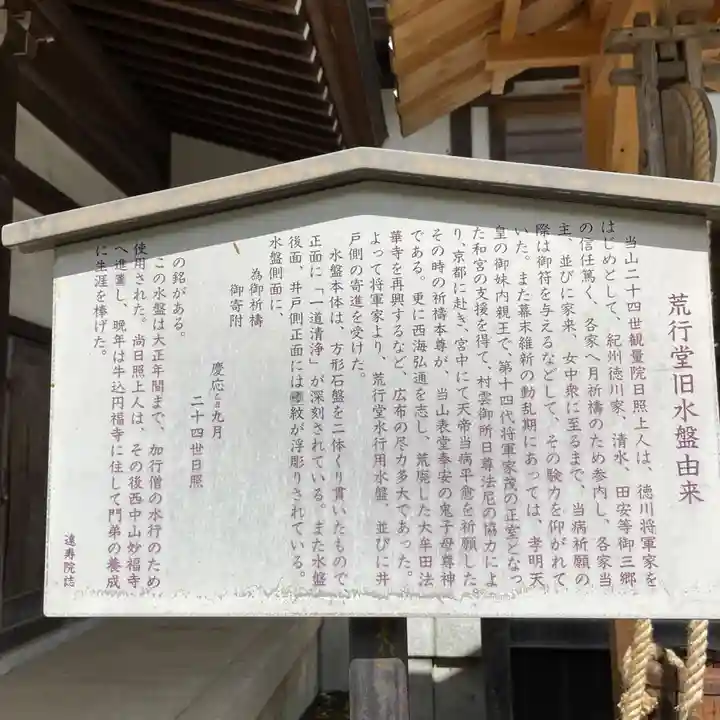 荒行堂旧水盤由来
当山二十四世観量院日照上人は、徳川将軍家を
はじめとして、紀州徳川家、清水、田安等御三郷
の信任篤く、各家へ月祈禱のため参内し、各家当
主、並びに家来、女中衆に至るまで、当病祈願の
際は御符を与えるなどして、その験力を仰がれて
いた。また幕末維新の動乱期にあっては、孝明天
皇の御妹内親王で、第十四代将軍家茂の正室となっ
た和宮の支援を得て、村雲御所日尊法尼の協力によ
り、京都に赴き、宮中にて天帝当病平愈を祈願した。
その時の祈禱本尊が、当山表堂奉安の鬼子母尊神
である。更に西海弘通を志し、荒廃した大牟田法
華寺を再興するなど、広布の尽力多大であった。
よって将軍家より、荒行堂水行用水盤、並びに井
戸側の寄進を受けた。
水盤本体は、方形石盤を二体くり貫いたもので、
正面に「一道清浄」が深刻されている。また水盤
後面、井戸側正面には紋が浮彫りされている。
水盤側面に、
為御祈禱
御寄附
慶応乙丑九月
二十四世日照
の銘がある。
この水盤は大正年間まで、加行僧の水行のため
使用された。尚日照上人は、その後西中山妙福寺
へ進し、晩年は牛込円福寺に住して門弟の養成
に生涯を捧げた。
遠寿院誌